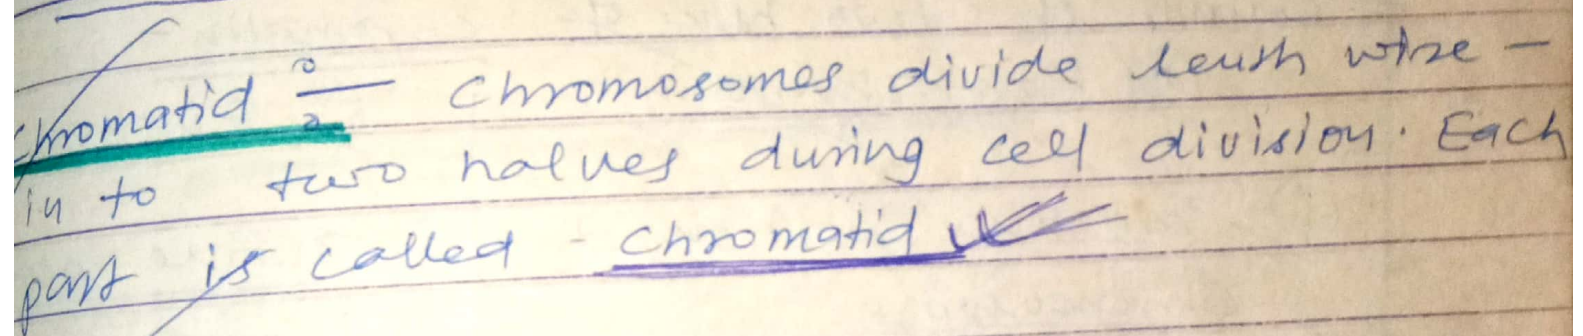 Chromatid :- Chromosomes divide leush wise -
in to two halves during cell division. Each
part is called - Chromatid